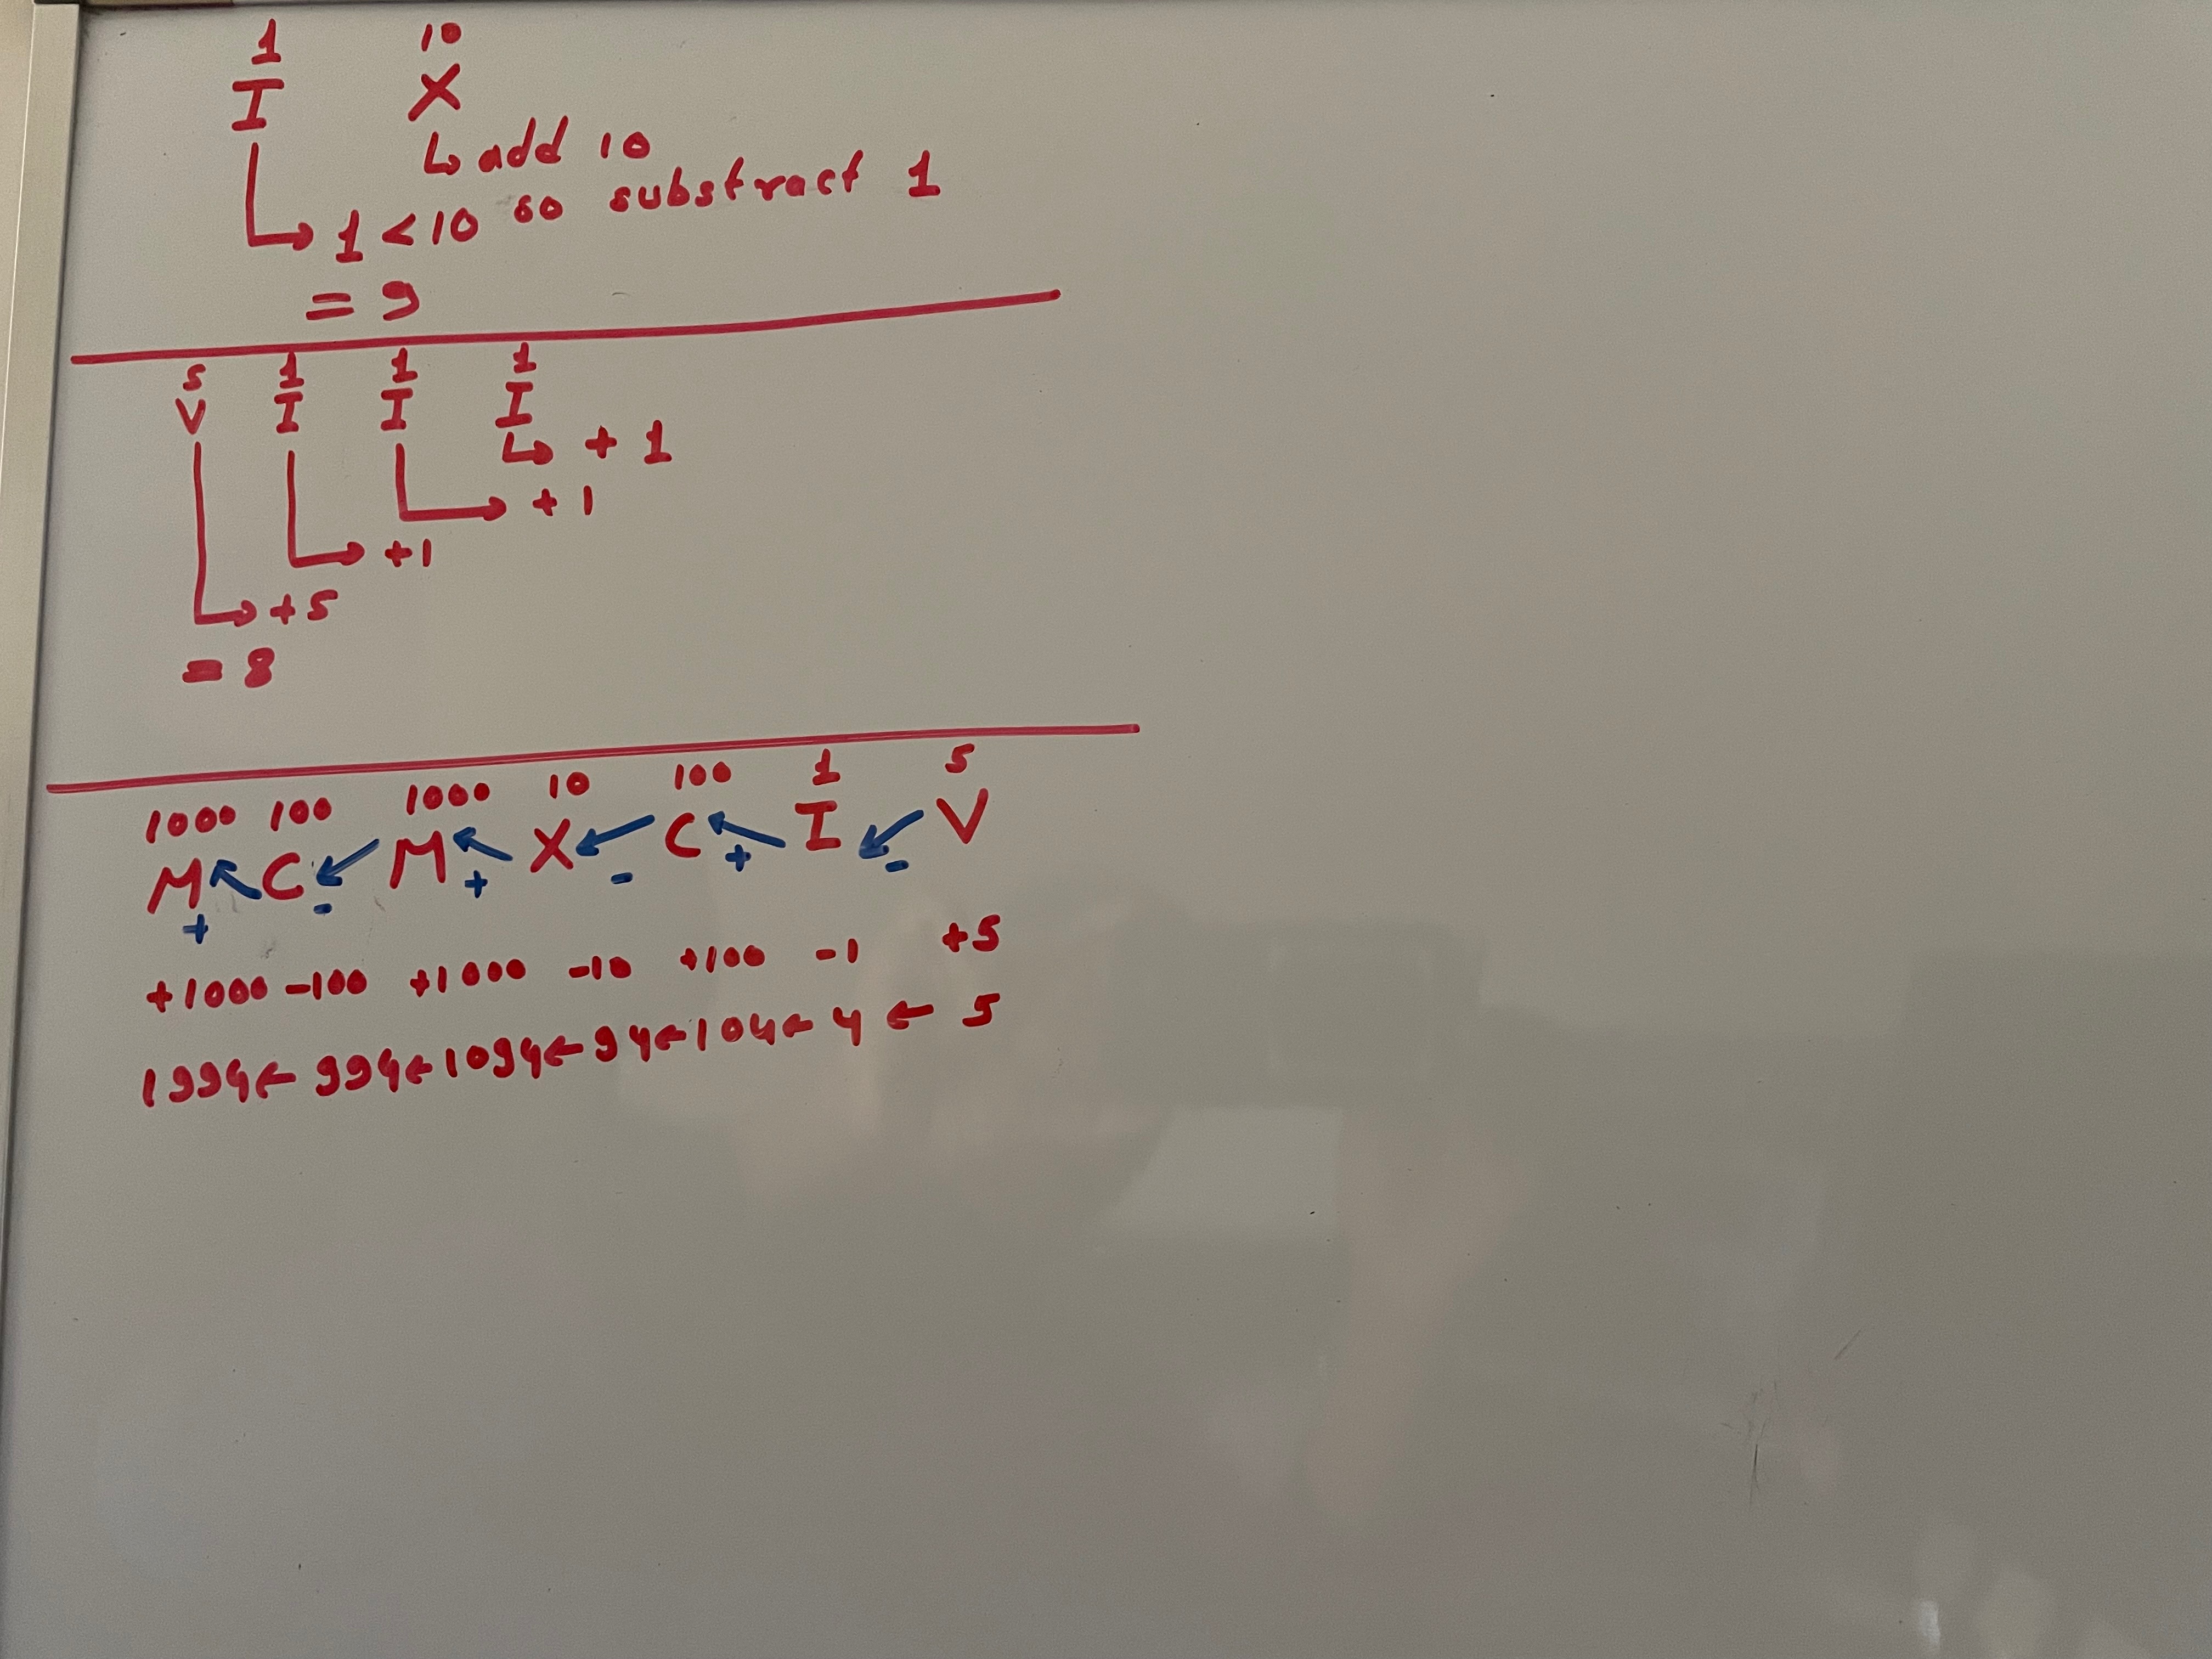 1 10
I X
↳ add 10
↳ 1 < 10 so substract 1
= 9
5 1 1 1
V I I I
↳ + 1
↳ + 1
↳ +1
↳ +5
= 8
1000 100 1000 10 100 1 5
M ↖ C ↙ M ↖ X ↙ C ↖ I ↙ V
+ - + - + -
+1000 -100 +1000 -10 +100 -1 +5
1994 ← 994 ← 1094 ← 94 ← 104 ← 4 ← 5